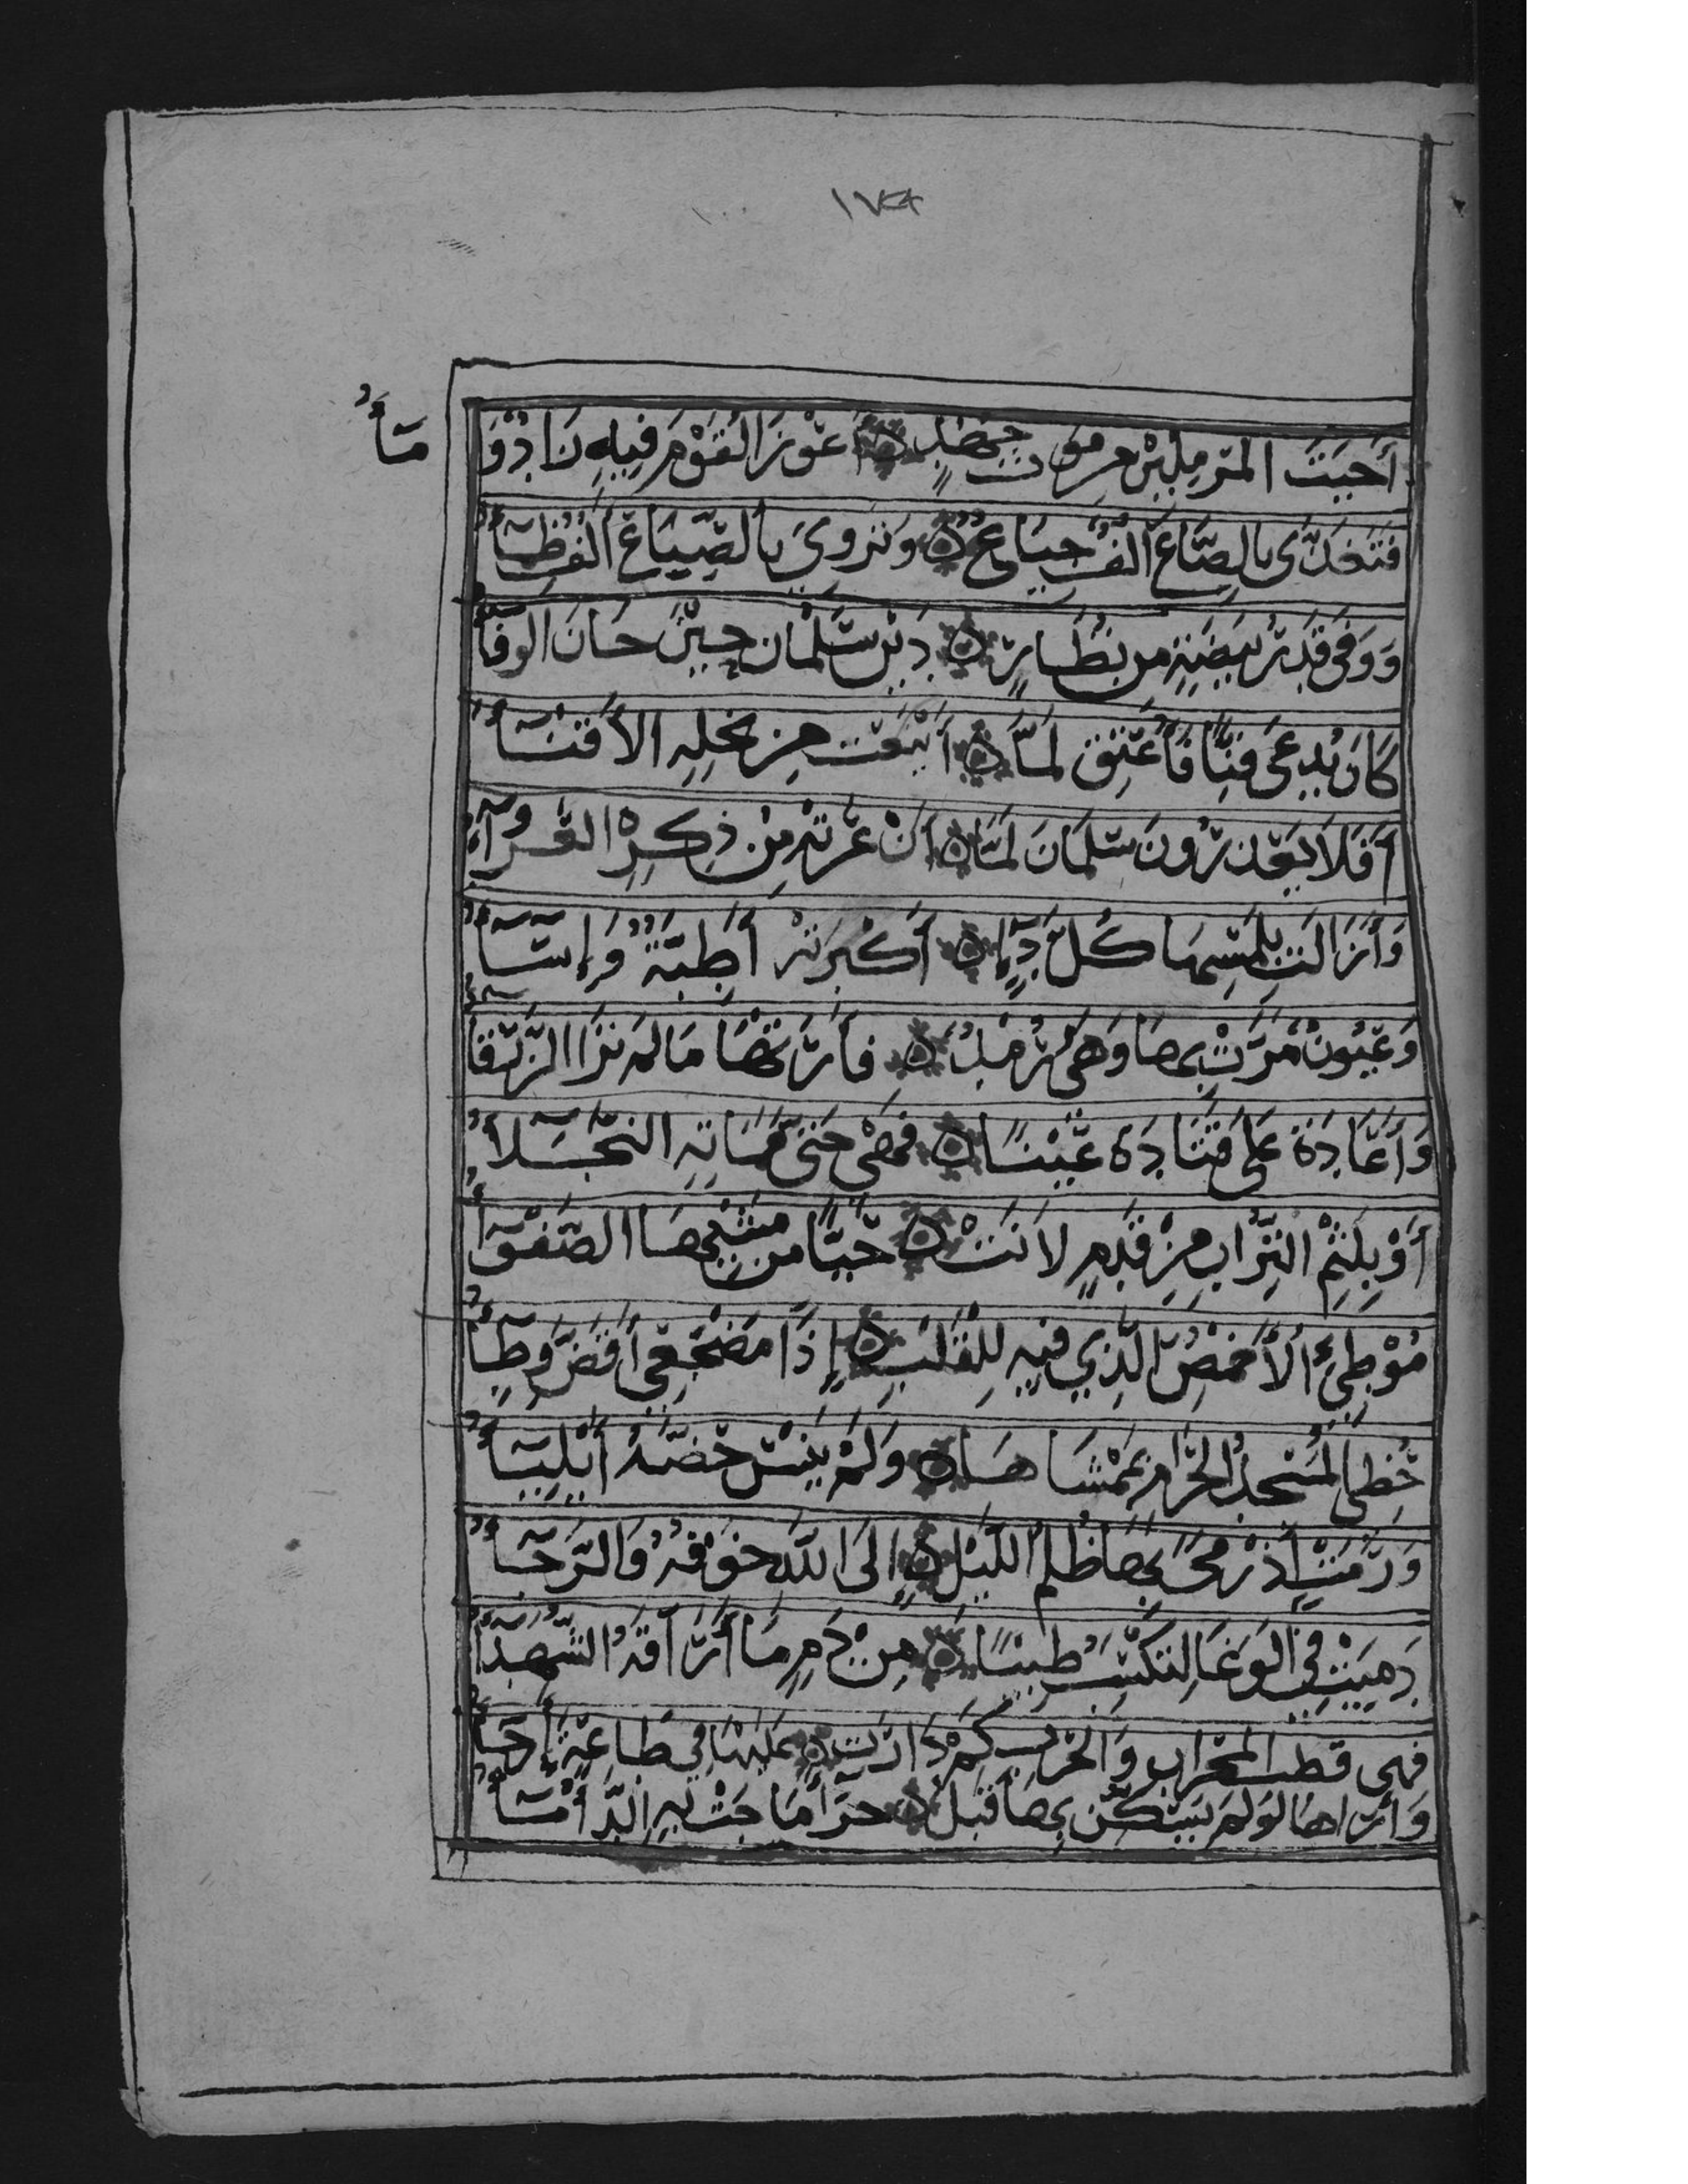 ١٧٤
أَحيَتَ المَرْمِلِيْنَ مِنْ مَوْتِ جَهْدٍ ۞ أَعْوَزَ القَوْمَ فِيْهِ زَادٌ وَ مَآءُ
فَتَغَدَّى بِالصَّاعِ أَلْفٌ جِيَاعٌ ۞ وَتَرَوىَ بِالصِّيَاعِ أَلْفٌ ظِمَآءُ
وَوَفى قَدْرُ بَيْضَةٍ مِن نُضَارٍ ۞ دَيْنَ سَلْمَانَ حِيْنَ حَانَ الوَفَآءُ
كَانَ يُدْعىَ قِنًّا فَأُعْتِقَ لَمَّا ۞ أَيْنَعَتْ مِنْ نَخِلِهِ الأَقْنَآءُ
أَفَلاَ يَعْذِرُوْنَ سَلْمَانَ لَمَّا ۞ أَنْ عَرَتْهُ مِنْ ذِكِرِهِ العُرَوآءُ
وَأَزَالَتْ بِلَمْسِهَا كُلَّ دَآءٍ ۞ أَكْبَرَتْهُ أَطِبَّةٌ وَإِسَآءُ
وَعُيُونٌ مَرَّتْ بِهَا وَهْيَ رُمْدٌ ۞ فَأَرَتْهَا مَالَمْ تَرَا الزَرْقَآءُ
وَأَعَادَةْ عَلىَ قَتَادَةَ عَيْنًا ۞ فَهْيَ حَتىَّ مَمَاتِهِ النَّجْلاَءُ
أَوْ بِلَثْمِ التُّرَابِ مِنْ قَدَمٍ لاَنَتْ ۞ حَيَّا مِن مَشْيِهَا الصَفْوَآءُ
مُوْطِئُ الأَخْمَصِ الَّذِي فِيْهِ لِلْقَلْبِ ۞ إِذَا مَضْجَعِي أَقَضَّ وِطَآءُ
حَظِيَ المَسْجِدُ الحَرَامُ بِمَمْشَاهَا ۞ وَلَمْ يَنْسَ حَضَّهُ أَيْلِيَآءُ
وَرِمَتْ إِذْ رَمىَ بِهَا ظُلَمَ اللَّيْلِ ۞ إِلَى اللهِ خَوْفُهُ وَالرَجَآءُ
دَمِيَتْ فِي الوَغَا لِتَكْسِبَ طِيْبًا ۞ مِنْ دَمٍ مَا أَرَاقَهُ الشُّهَدَآءُ
فَهي قطبُ المِحْرَابِ وَالحَرْبِ كَمْ دَارَتْ ۞ عَلَيْهَا فِي طَاعِةٍ أَرْحَآءُ
وَأَرَاهَا لَوْلَمْ يَسَكِّنْ بِهَا قَبْلُ ۞ حِرَآءً مَاجَتْ بِهِ الدَّأْمَآءُ